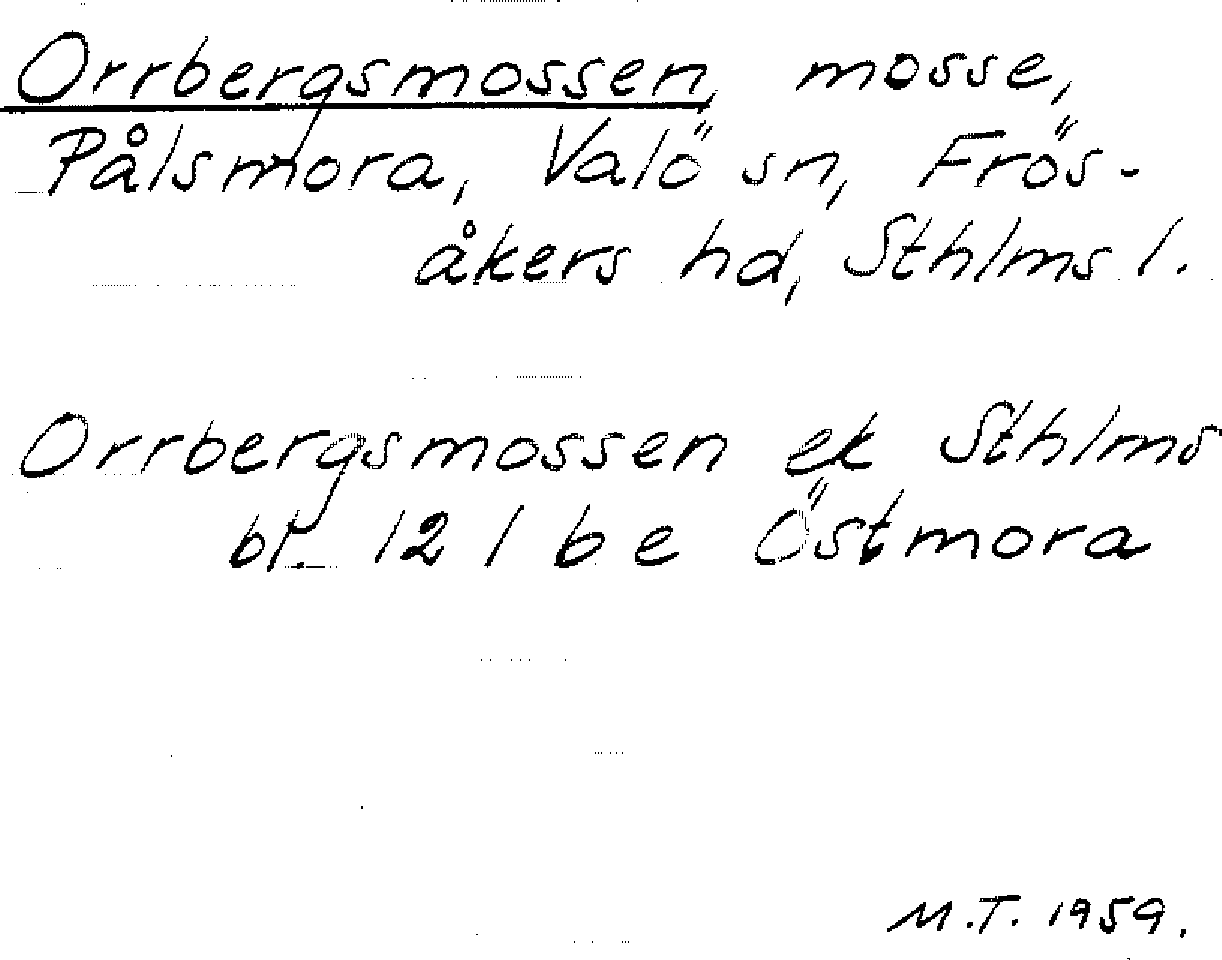 Orrbergsmossen, mosse,
Pålsmora, Valö sn, Frös-
åkers hd, Sthlms l.
Orrbergsmossen ek Sthlms
bl. 12 I b e Östmora
M.T. 1959.